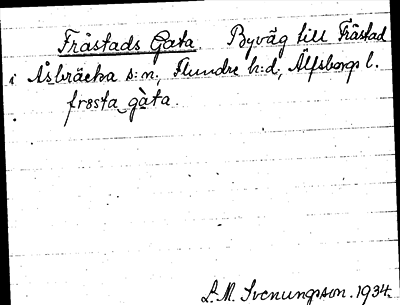 Fråstads Gata. Byväg till Fråstad
i Åsbräcka s:n, Flundre h:d, Älfsborgs l.
frɷsta gàta.
L. M. Svenungsson. 1934.